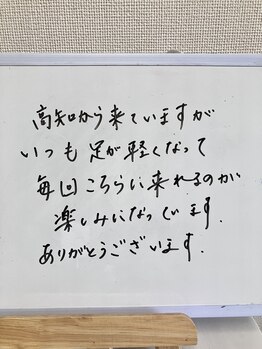 高知から来ていますが
いつも足が軽くなって
毎回こちらに来れるのが
楽しみになっています.
ありがとうございます.